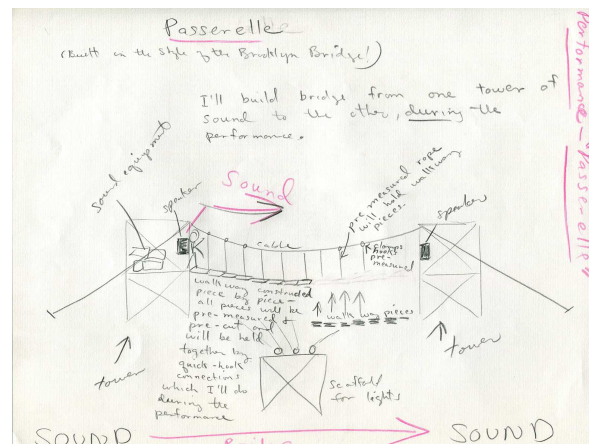 Passerelle
(Built in the style of the Brooklyn Bridge!)
Performance - "Passerelle"
I'll build bridge from one tower of
sound to the other, during the
performance.
sound equipment
speaker
Sound
cable
pre measured rope
will hold walkway
pieces.
clamps
hooks
pre-
measured
speaker
walkway constructed
piece by piece -
all pieces will be
pre-measured &
pre-cut and
will be held
together by
quick-hook
connections
which I'll do
during the
performance
walk way pieces
tower
Scaffold
for lights
tower
SOUND
SOUND